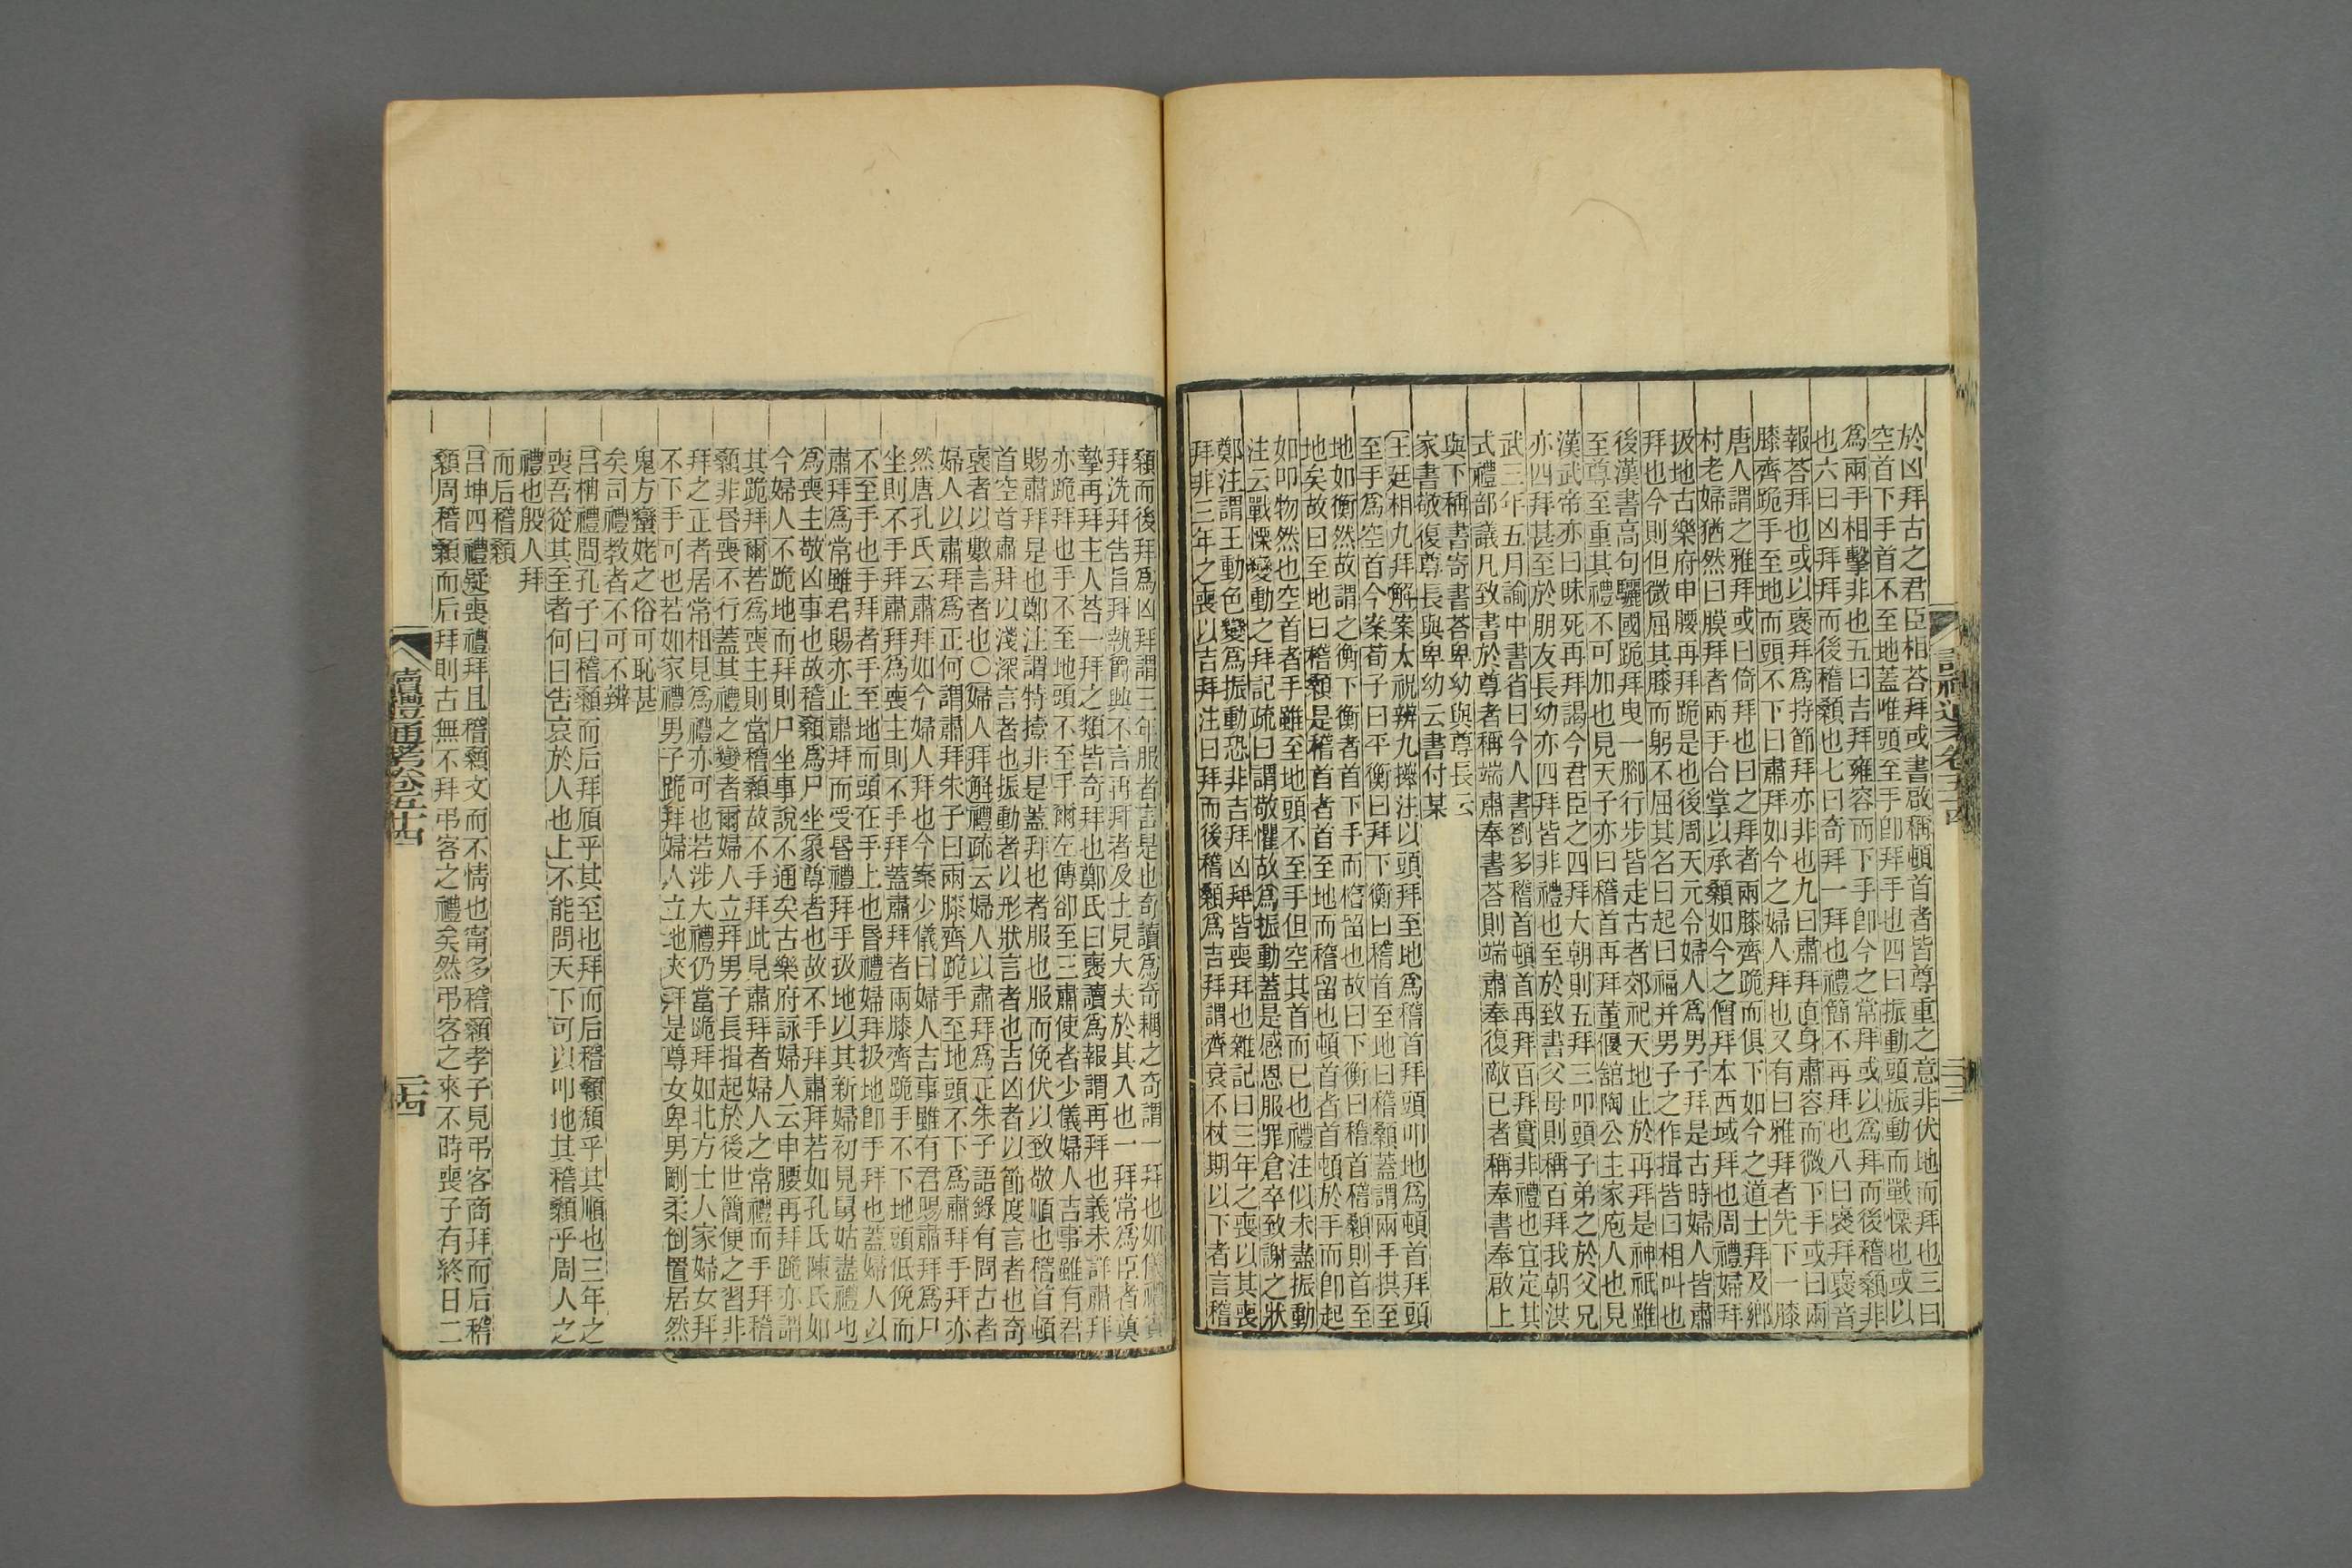 於凶拜古之君臣相荅拜或書啟稱頓首者皆尊重之意非伏地而拜也三曰
空首下手首不至地蓋唯頭至手卽拜手也四曰振動頭振動而戰慄也或以
爲兩手相擊非也五曰吉拜雍容而下手卽今之常拜或以爲拜而後稽顙非
也六曰凶拜拜而後稽顙也七曰奇拜一拜也禮簡不再拜也八曰襃拜襃音
報荅拜也或以襃拜爲持節拜亦非也九曰肅拜直身肅容而微下手或曰兩
膝齊跪手至地而頭不下曰肅拜如今之婦人拜也又有曰雅拜者先下一膝
唐人謂之雅拜或曰倚拜也曰之拜者兩膝齊跪而俱下如今之道士拜及鄉
村老婦猶然曰膜拜者兩手合掌以承顙如今之僧拜本西域拜也周禮婦拜
扱地古樂府申腰再拜跪是也後周天元令婦人爲男子拜是古時婦人皆肅
拜也今則但微屈其膝而躬不屈其名曰起曰福并男子之作揖皆曰相叫也
後漢書高句驪國跪拜曳一腳行步皆走古者郊祀天地止於再拜是神祇雖
至尊至重其禮不可加也見天子亦曰稽首再拜董偃舘陶公主家庖人也見
漢武帝亦曰昧死再拜謁今君臣之四拜大朝則五拜三叩頭子弟之於父兄
亦四拜甚至於朋友長幼亦四拜皆非禮也至於致書父母則稱百拜我朝洪
武三年五月諭中書省曰今人書劄多稽首頓首再拜百拜實非禮也宜定其
式禮部議凡致書於尊者稱端肅奉書荅則端肅奉復敵已者稱奉書奉啟上
與下稱書寄書荅卑幼與尊長云
家書敬復尊長與卑幼云書付某
王廷相九拜解案太祝辨九𢷎注以頭拜至地爲稽首拜頭叩地爲頓首拜頭
至手爲空首今案荀子曰平衡曰拜下衡曰稽首至地曰稽顙蓋謂兩手拱至
地如衡然故謂之衡下衡者首下手而稽留也故曰下衡曰稽首稽顙則首至
地矣故曰至地曰稽顙是稽首者首至地而稽留也頓首者首頓於手而卽起
如叩物然也空首者手雖至地頭不至手但空其首而已也禮注似未盡振動
注云戰慄變動之拜記疏曰謂敬懼故爲振動蓋是感恩服罪倉卒致謝之狀
鄭注謂王動色變爲振動恐非吉拜凶拜皆喪拜也雜記曰三年之喪以其喪
拜非三年之喪以吉拜注曰拜而後稽顙爲吉拜謂齊衰不杖期以下者言稽
顙而後拜爲凶拜謂三年服者言是也奇讀爲奇耦之奇謂一拜也如儀禮賓
拜洗拜告旨拜執爵興不言再拜者及士見大夫於其入也一拜常爲臣者奠
摯再拜主人荅一拜之類皆奇拜也鄭氏曰襃讀爲報謂再拜也義未詳肅拜
亦跪拜也手不至地頭不至手爾左傳郤至三肅使者少儀婦人吉事雖有君
賜肅拜是也鄭注謂特擅非是蓋拜也者服也服而俛伏以致敬順也稽首頓
首空首肅拜以淺深言者也振動者以形狀言者也吉凶者以節度言者也奇
襃者以數言者也○婦人拜解禮疏云婦人以肅拜爲正朱子語錄有問古者
婦人以肅拜爲正何謂肅拜朱子曰兩膝齊跪手至地頭不下爲肅拜手拜亦
然唐孔氏云肅拜如今婦人拜也今案少儀曰婦人吉事雖有君賜肅拜爲尸
坐則不手拜肅拜爲喪主則不手拜蓋肅拜者兩膝齊跪手不下地頭低俛而
不至手也手拜者手至地而頭在手上也昏禮婦拜扱地卽手拜也蓋婦人以
肅拜爲常雖君賜亦止肅拜而受昏禮拜手扱地以其新婦初見舅姑盡禮也
爲喪主敬凶事也故稽顙爲尸坐象尊者也故不手拜肅拜若如孔氏陳氏如
今婦人不跪地而拜則尸坐事說不通矣古樂府詠婦人云申腰再拜跪亦謂
其跪拜爾若爲喪主則當稽顙故不手拜此見肅拜者婦人之常禮而手拜稽
顙非昏喪不行蓋其禮之變者爾婦人立拜男子長揖起於後世簡便之習非
拜之正者居常相見爲禮亦可也若涉大禮仍當跪拜如北方士人家婦女拜
不下手可也若如家禮男子跪拜婦人立地夾拜是尊女卑男剛柔倒置居然
鬼方蠻姥之俗可恥甚
矣司禮教者不可不辨
呂柟禮問孔子曰稽顙而后拜頎乎其至也拜而后稽顙頽乎其順也三年之
喪吾從其至者何曰告哀於人也上不能問天下可以叩地其稽顙乎周人之
禮也殷人拜
而后稽顙
呂坤四禮疑喪禮拜且稽顙文而不情也甯多稽顙孝子見弔客商拜而后稽
顙周稽顙而后拜則古無不拜弔客之禮矣然弔客之來不時喪子有終日二
讀禮通考卷五十四
二十四